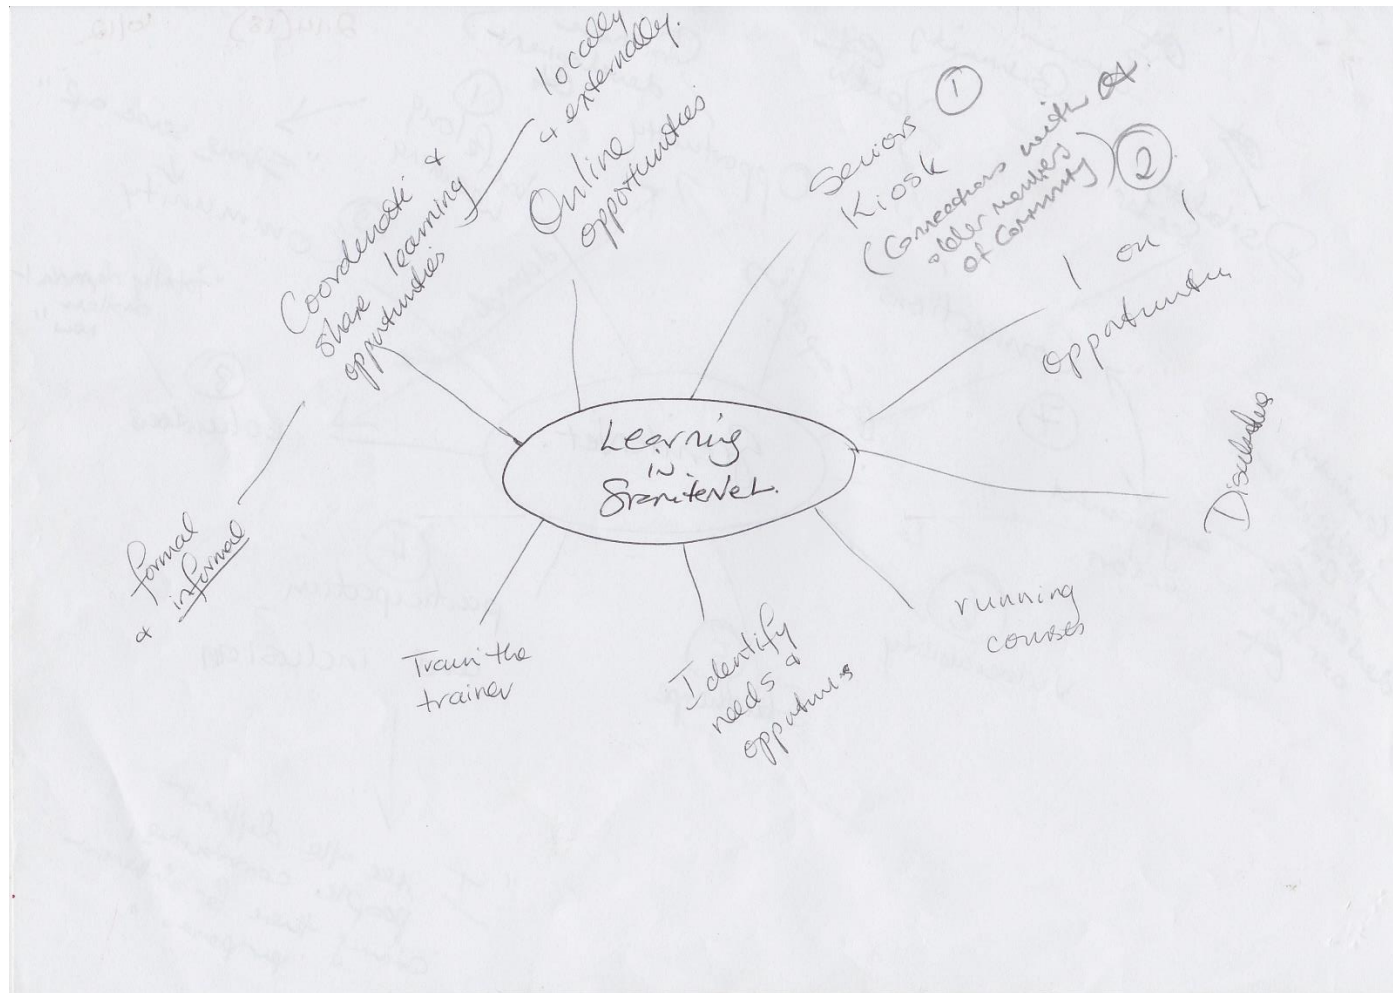 Learning
in
GraniteNet.
Coordinate &
share learning
opportunities
locally
& externally.
Online
opportunities
Seniors ①
Kiosk
(Connections with
older members
of Community) ②
1 on 1
opportunities
running
courses
Identify
needs &
opportunities
Train the
trainer
formal
& informal